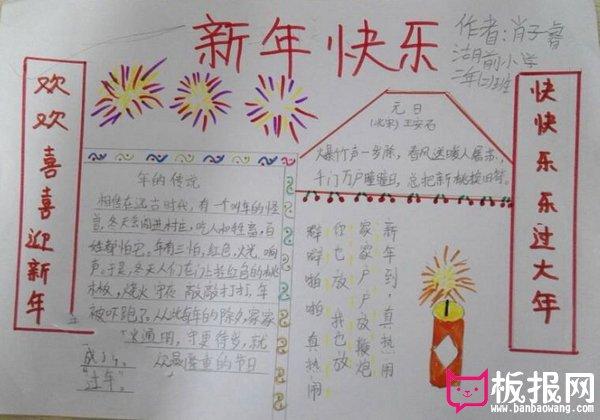 新年快乐
作者:肖子睿
湖前小学
二年(2)班
欢欢喜喜迎新年
快快乐乐过大年
元日
(北宋)王安石
爆竹声一岁除,春风送暖入屠苏,
千门万户曈曈日,总把新桃换旧符。
年的传说
相传在远古时代,有一个叫年的怪
兽,冬天会闯进村庄,吃人和牲畜,百
姓都怕它。年有三怕,红色,火光,响
声。于是,冬天人们在门上挂红色的桃
木板,烧火
敲敲打打,年
被吓跑了。从此每年的除夕,家家
火通明,守更待岁,就
成了
最隆重的节日
“过年”。
新年到,真热闹
家家户户放鞭炮
你也放 我也放
噼噼啪啪真热闹
板报网
www.banbaowang.com